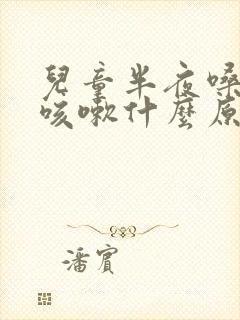 兒童半夜嗓
咳嗽什麼原
潘賓